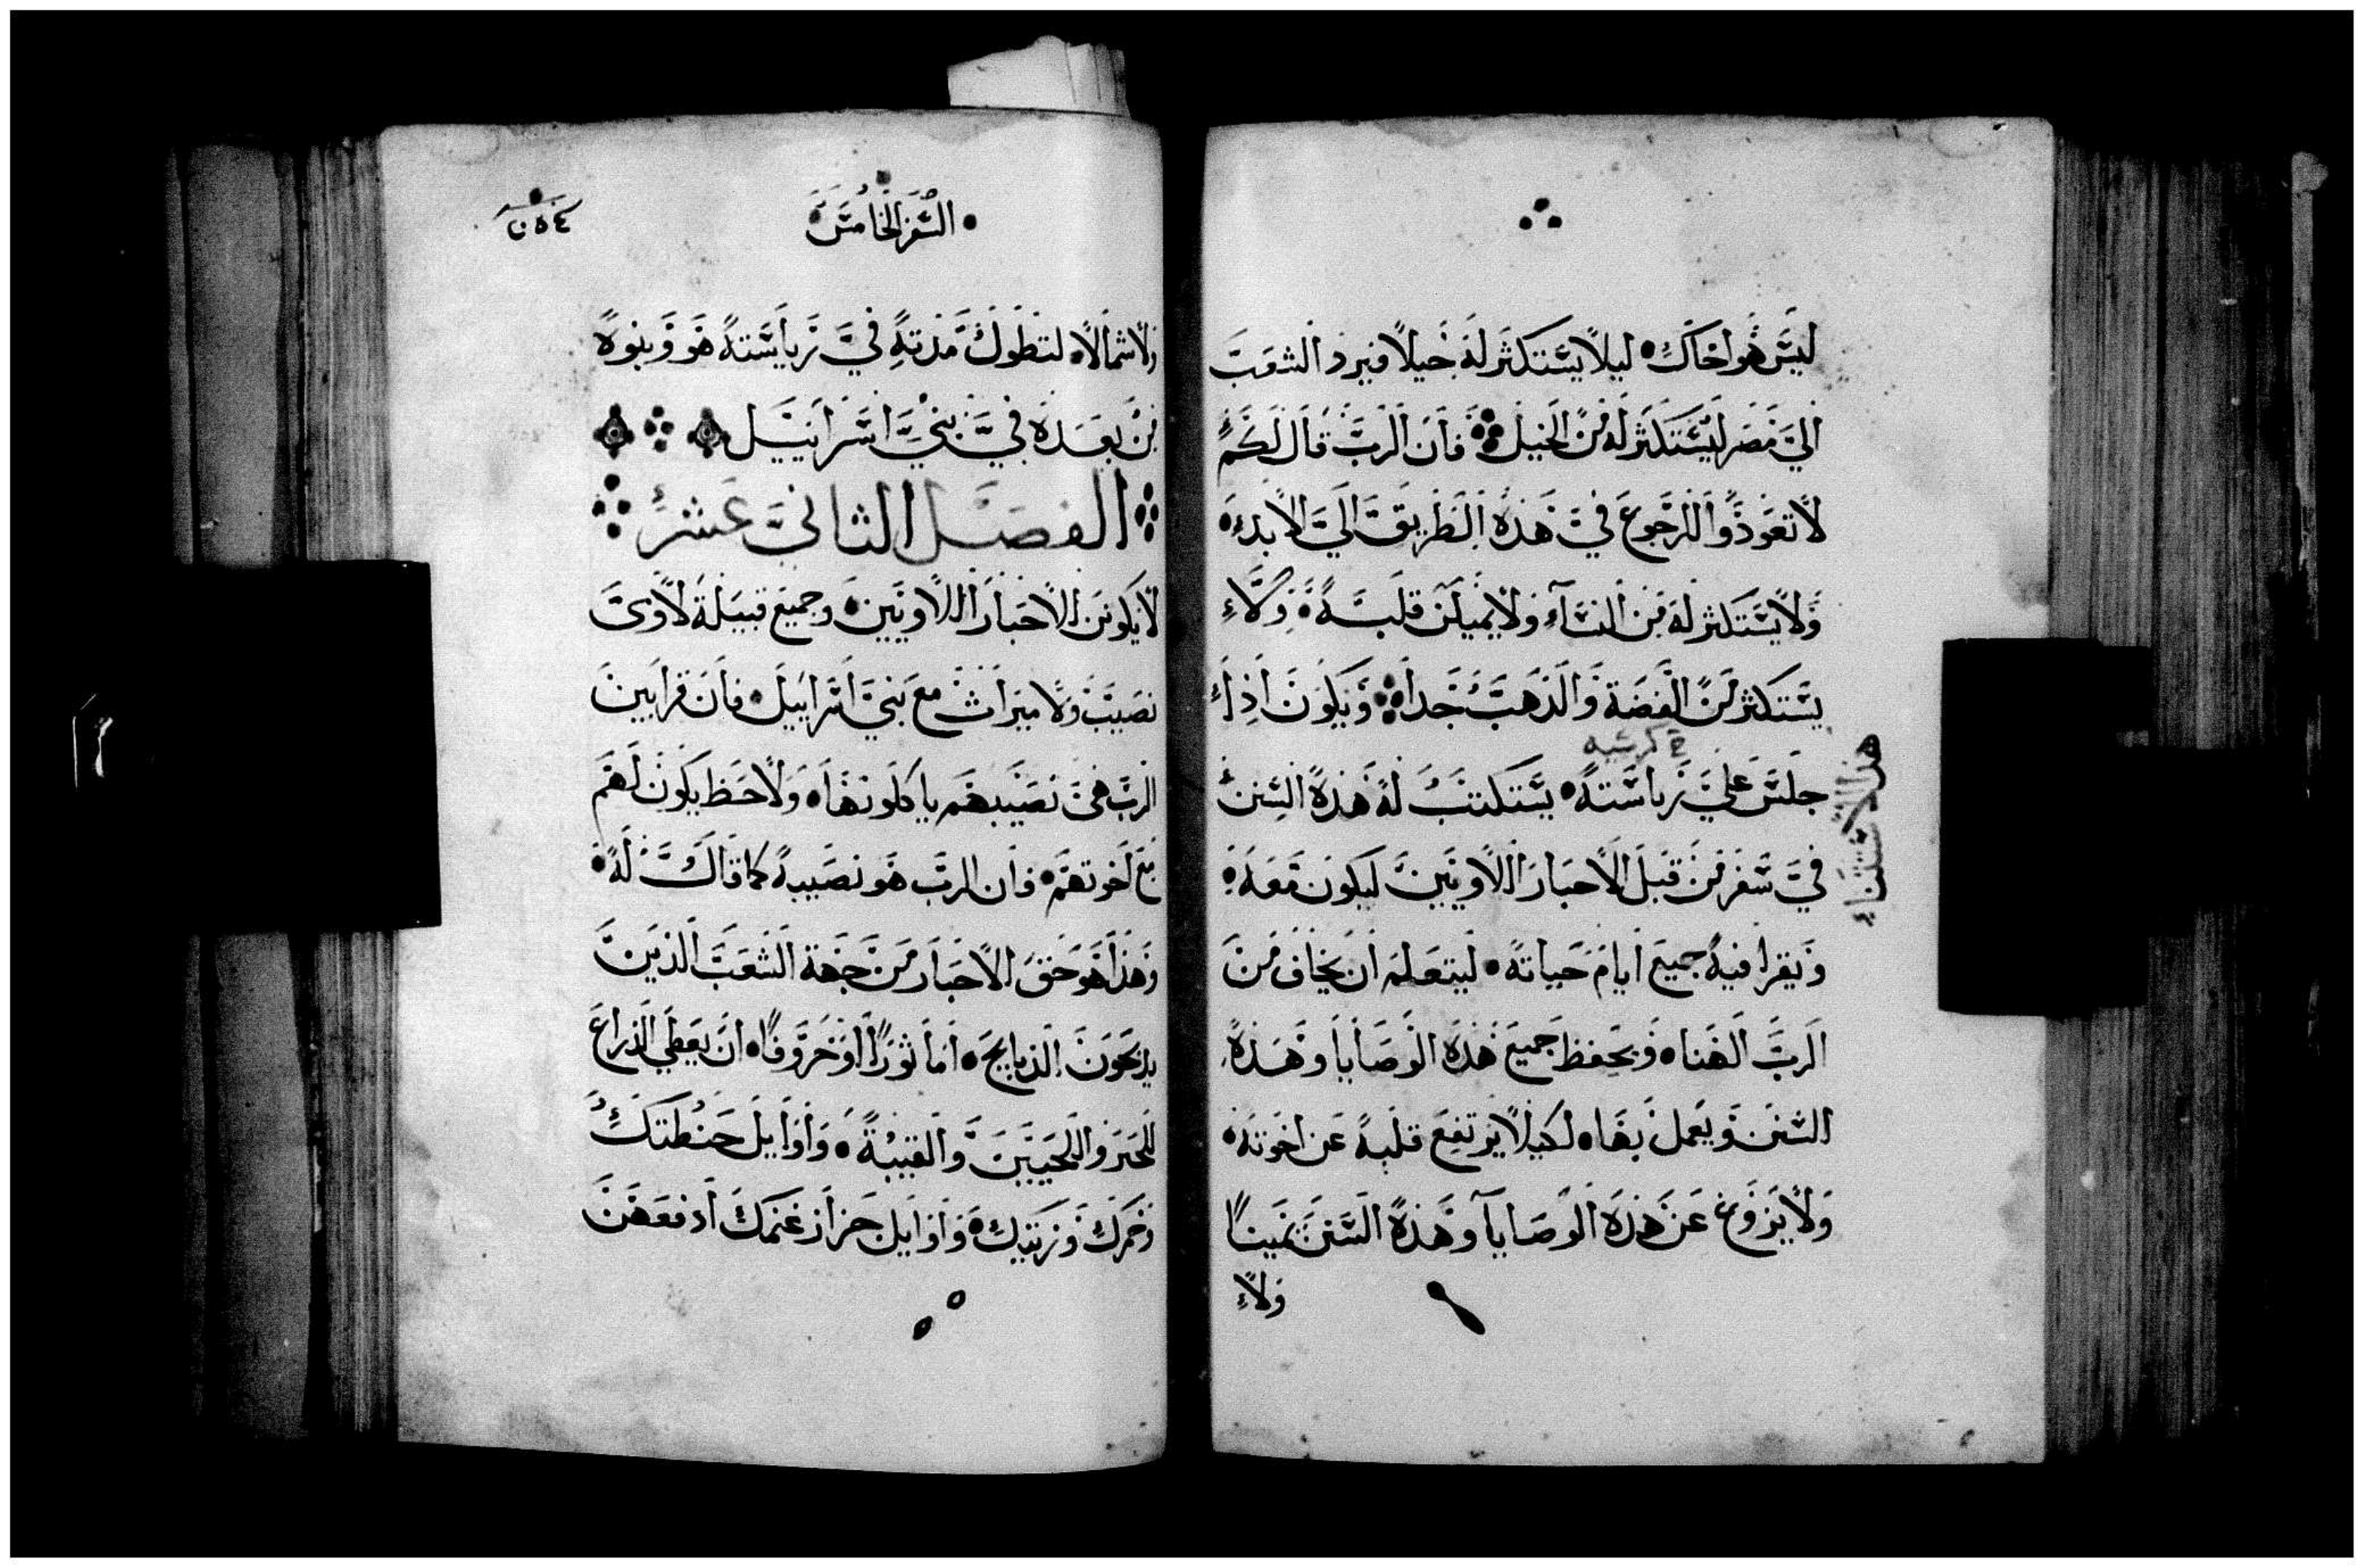 ليس هو اخاك ليلا يستكثر له خيلا فيرد الشعب
الي مصر ليستكثر له من الخيل فان الرب قال لكم
لا تعودوا الرجوع في هذه الطريق الي الابد
ولا يستكثر له من النساء ولا يميلن قلبه ولا
يستكثر من الفضة والذهب جدا ويكون اذا
كرسيه
جلس علي رياسته يستكتب له هذه السنن
هذا الاستثناء
في سفر من قبل الاحبار اللاويين ليكون معه
ويقرا فيه جميع ايام حياته ليتعلم ان يخاف من
الرب الهنا ويحفظ جميع هذه الوصايا وهذه
السنن ويعمل بها لكيلا يرتفع قلبه عن اخوته
ولا يزوغ عن هذه الوصايا وهذه السنن يمينا
ولا
السفر الخامس
ولا شمالا لتطول مدته في رياسته هو وبنوه
من بعده في بني اسراييل
الفصل الثاني عشر
لا يكونن للاحبار اللاويين وجميع قبيلة لاوي
نصيب ولا ميراث مع بني اسراييل فان قرابين
الرب هي نصيبهم ياكلونها ولا حظ يكون لهم
مع اخوتهم فان الرب هو نصيبه كما قال له
وهذا هو حق الاحبار من جهة الشعب الذين
يذبحون الذبايح اما ثورا او خروفا ان يعطي الذراع
للحبر واللحيين والقبيبة واوايل حنطتك
وخمرك وزيتك واوايل جزاز غنمك ادفعهن